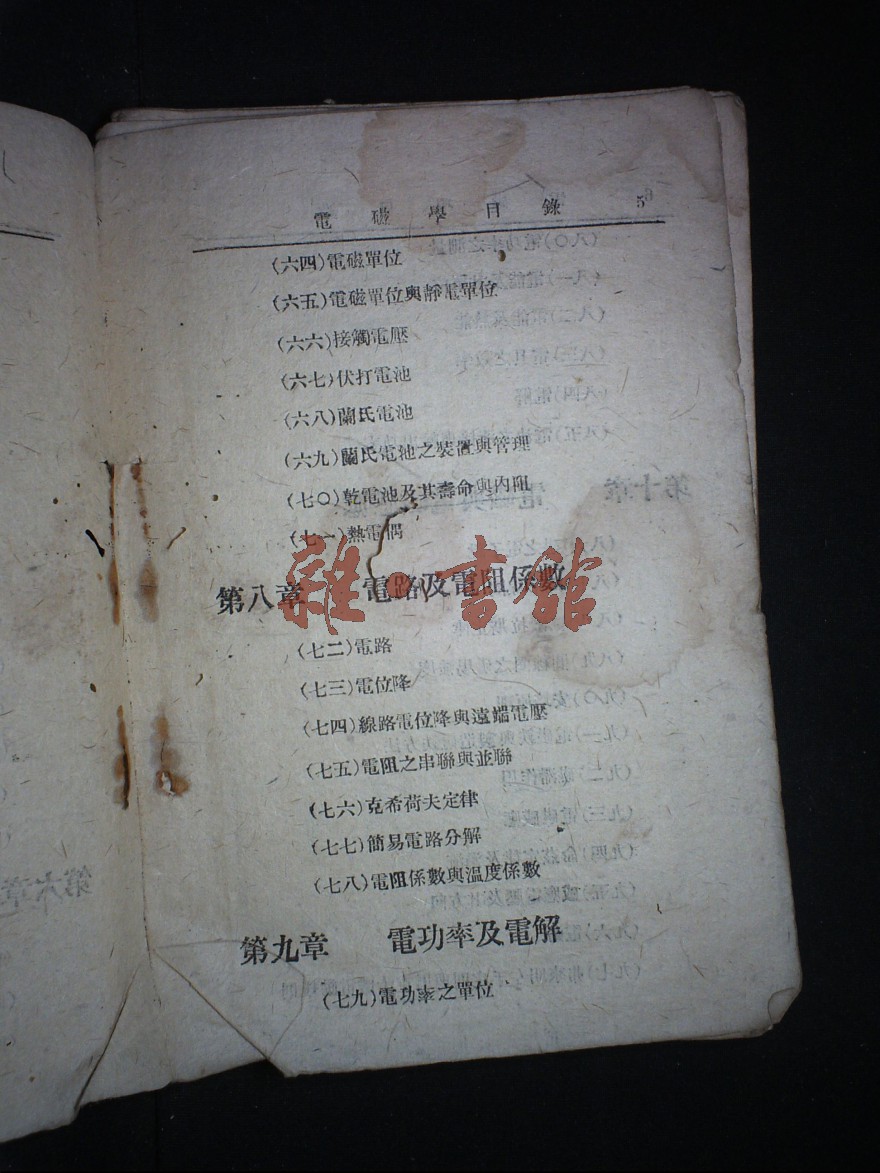 電磁學目錄 5
(六四)電磁單位
(六五)電磁單位與靜電單位
(六六)接觸電壓
(六七)伏打電池
(六八)蘭氏電池
(六九)蘭氏電池之裝置與管理
(七〇)乾電池及其壽命與內阻
(七一)熱電偶
第八章 電路及電阻係數
雜·書館
(七二)電路
(七三)電位降
(七四)線路電位降與遠端電壓
(七五)電阻之串聯與並聯
(七六)克希荷夫定律
(七七)簡易電路分解
(七八)電阻係數與温度係數
第九章 電功率及電解
(七九)電功率之單位